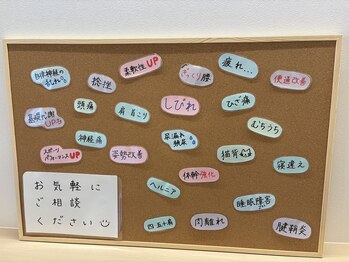 自律神経の
乱れ
捻挫
柔軟性UP
ぎっくり腰
疲れ...
便通改善
頭痛
肩首こり
しびれ
ひざ痛
基礎代謝
UP
むちうち
神経痛
尿漏れ
頻尿
スポーツ
パフォーマンスUP
姿勢改善
猫背
寝違え
体幹強化
ヘルニア
睡眠障害
四・五十肩
肉離れ
腱鞘炎
お気軽に
ご相談
ください